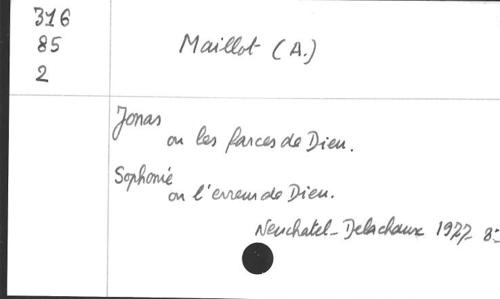 316
85
2
Maillot (A.)
Jonas
ou les farces de Dieu.
Sophonie
ou l'erreur de Dieu.
Neuchatel - Delachaux 1977 8°